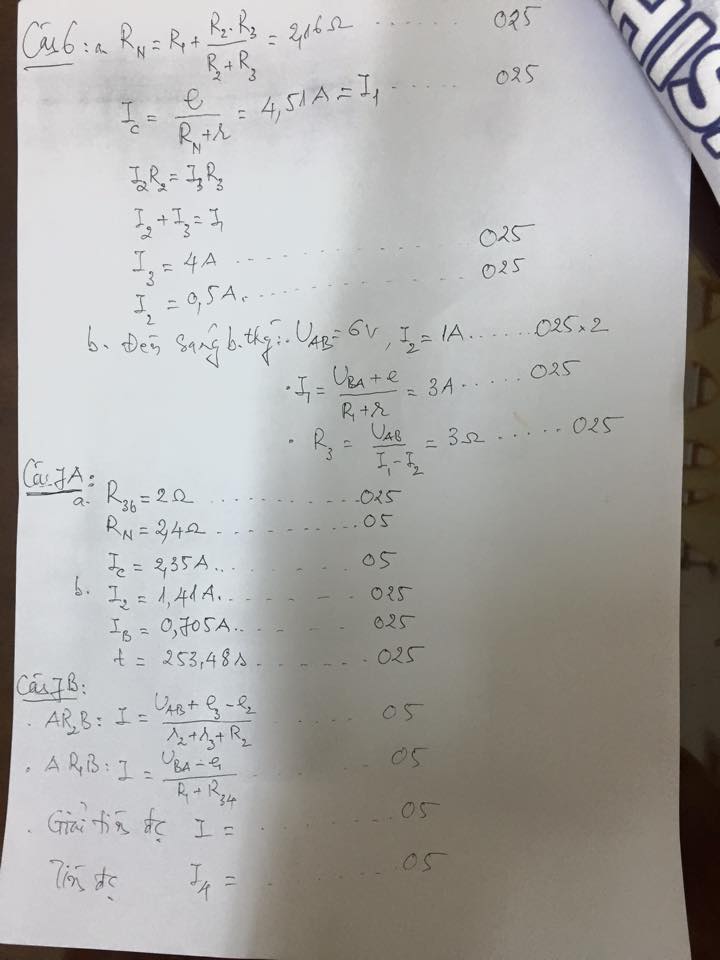 Câu 6: a. R_N = R₁ + (R₂.R₃)/(R₂+R₃) = 2,16Ω ........ 025
I_c = e/(R_N+r) = 4,51A = I₁ ..... 025
I₂R₂ = I₃R₃
I₂ + I₃ = I₁
I₃ = 4A ........ 025
I₂ = 0,5A. ........ 025
b. Đèn sáng b.thg: . U_AB = 6V, I₂ = 1A ....... 025x2
. I₁ = (U_BA + e)/(R₁+r) = 3A ..... 025
. R₃ = U_AB/(I₁-I₂) = 3Ω ..... 025
Câu 7A:
a. R₃b = 2Ω ........ 025
R_N = 2,4Ω ........ 05
I_c = 2,35A ........ 05
b. I₂ = 1,41A ........ 025
I_B = 0,705A ........ 025
t = 253,48s ........ 025
Câu 7B:
. AR₂B: I = (U_AB + e₃ - e₂)/(r₂+r₃+R₂) ..... 05
. AR₁B: I = (U_BA - e₁)/(R₁ + R₃₄) ..... 05
. Giải tiếp đc I = ........ 05
Tính đc I₄ = ........ 05
HIS